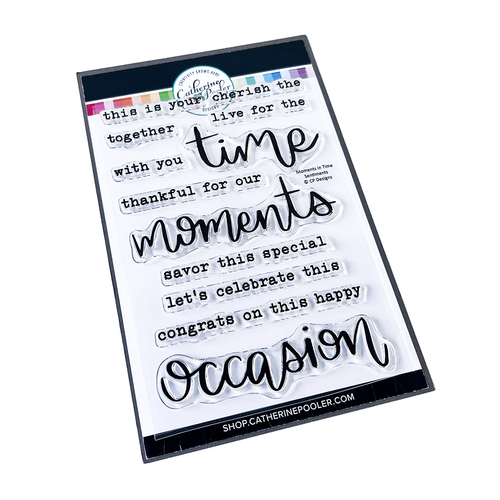 CREATIVITY GROWS HERE
Catherine
Pooler
DESIGNS
this is your cherish the
together live for the
with you time
thankful for our
Moments in Time
Sentiments
© CP Designs
moments
savor this special
let's celebrate this
congrats on this happy
occasion
SHOP.CATHERINEPOOLER.COM